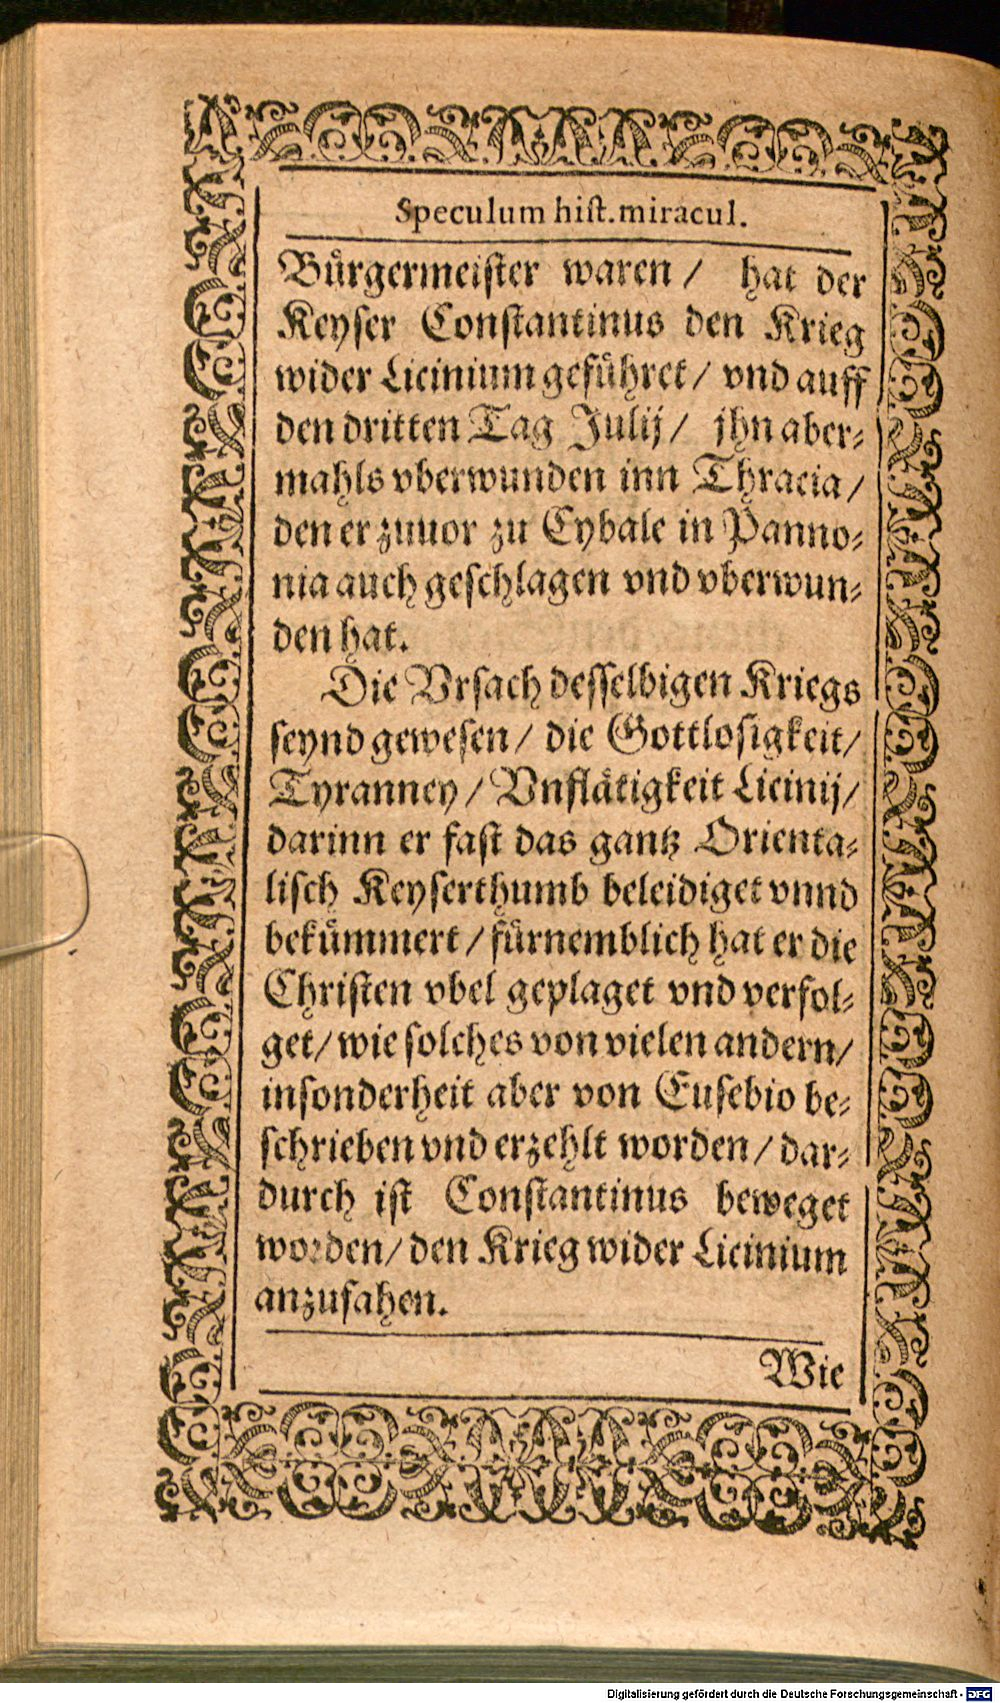 Speculum hist. miracul.
Bůrgermeister waren / hat der
Keyser Constantinus den Krieg
wider Licinium gefůhret / vnd auff
den dritten Tag Julij / jhn aber-
mahls vberwunden inn Thracia /
den er zuuor zu Cybale in Panno-
nia auch geschlagen vnd vberwun-
den hat.
Die Vrsach desselbigen Kriegs
seynd gewesen / die Gottlosigkeit /
Tyranney / Vnflätigkeit Licinij /
darinn er fast das gantz Orienta-
lisch Keyserthumb beleidiget vnnd
bekům̃ert / fůrnemblich hat er die
Christen vbel geplaget vnd verfol-
get / wie solches von vielen andern /
insonderheit aber von Eusebio be-
schrieben vnd erzehlt worden / dar-
durch ist Constantinus beweget
worden / den Krieg wider Licinium
anzufahen.
Wie
Digitalisierung gefördert durch die Deutsche Forschungsgemeinschaft - DFG